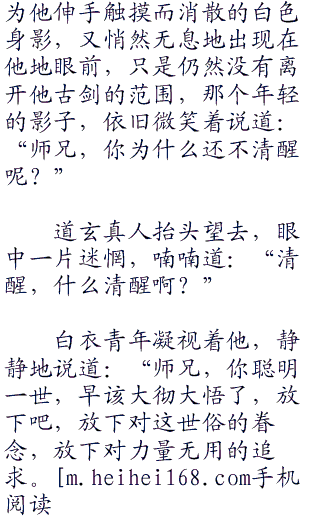 为他伸手触摸而消散的白色
身影，又悄然无息地出现在
他地眼前，只是仍然没有离
开他古剑的范围，那个年轻
的影子，依旧微笑着说道：
“师兄，你为什么还不清醒
呢？”
道玄真人抬头望去，眼
中一片迷惘，喃喃道：“清
醒，什么清醒啊？”
白衣青年凝视着他，静
静地说道：“师兄，你聪明
一世，早该大彻大悟了，放
下吧，放下对这世俗的眷
念，放下对力量无用的追
求。[m.heihei168.com手机
阅读